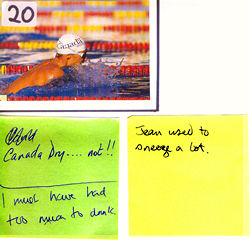 20
Canada
Canada Dry.... not!!
I must have had
too much to drink.
Jean used to
sneeze a lot.